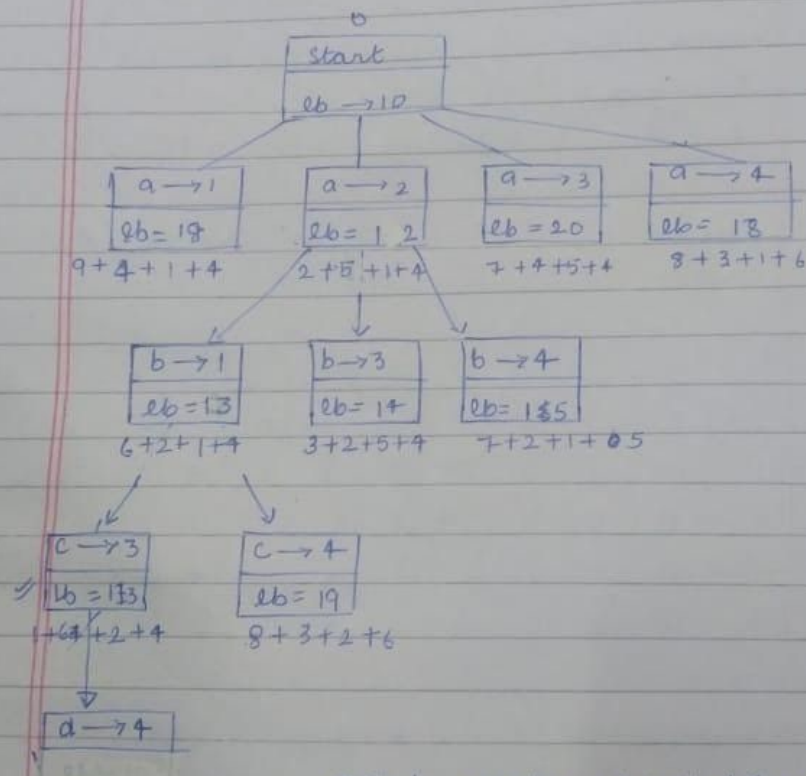 0
start
lb → 10
a → 1
lb = 18
9 + 4 + 1 + 4
a → 2
lb = 1 2
2 + 5 + 1 + 4
a → 3
lb = 20
7 + 4 + 5 + 4
a → 4
lb = 18
8 + 3 + 1 + 6
b → 1
lb = 13
6 + 2 + 1 + 4
b → 3
lb = 14
3 + 2 + 5 + 4
b → 4
lb = 15
7 + 2 + 1 + 5
c → 3
lb = 13
1 + 6 + 2 + 4
c → 4
lb = 19
8 + 3 + 2 + 6
d → 4